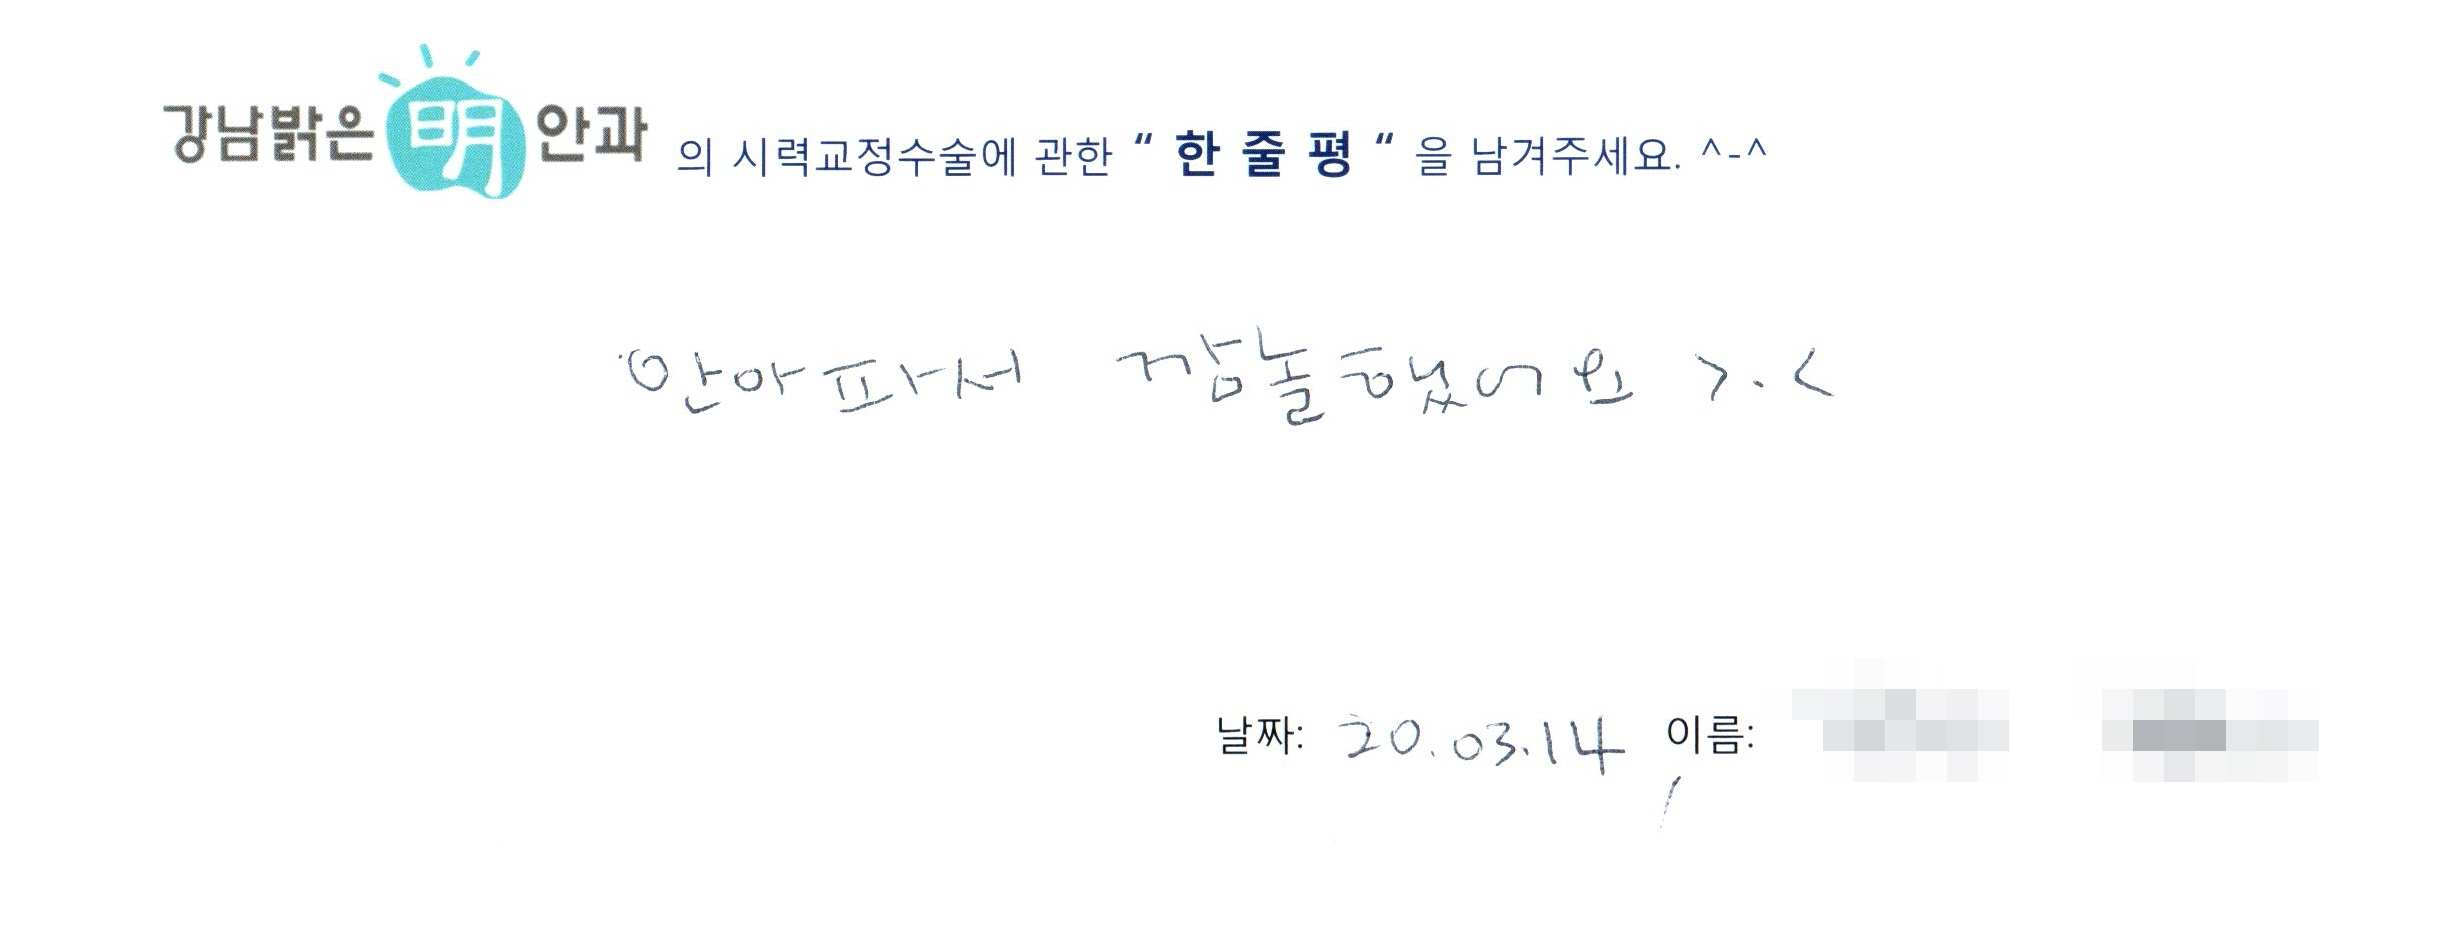 강남밝은明안과 의 시력교정수술에 관한 “ 한 줄 평 “ 을 남겨주세요. ^-^
안아파서 깜놀했어요 >.<
날짜: 20.03.14 이름: